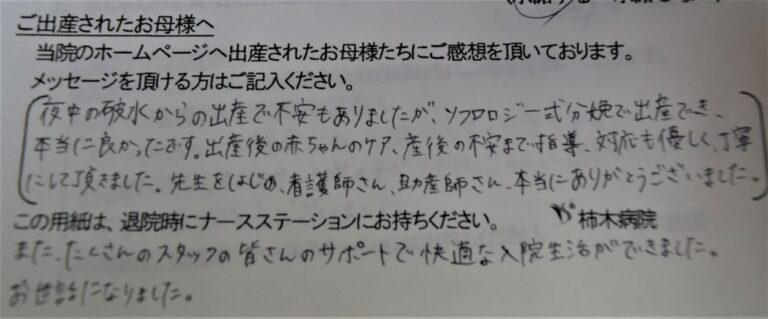 ご出産されたお母様へ
当院のホームページへ出産されたお母様たちにご感想を頂いております。
メッセージを頂ける方はご記入ください。
夜中の破水からの出産で不安もありましたが、ソフロロジー式分娩で出産でき、
本当に良かったです。出産後の赤ちゃんのケア、産後の不安まで指導、対応も優しく、丁寧
にして頂きました。先生をはじめ、看護師さん、助産師さん、本当にありがとうございました。
この用紙は、退院時にナースステーションにお持ちください。 柿木病院
また、たくさんのスタッフの皆さんのサポートで快適な入院生活ができました。
お世話になりました。